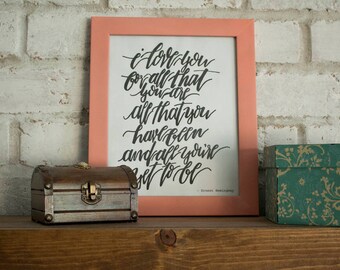 i love you
for all that
you are
all that you
have been
and all you're
yet to be